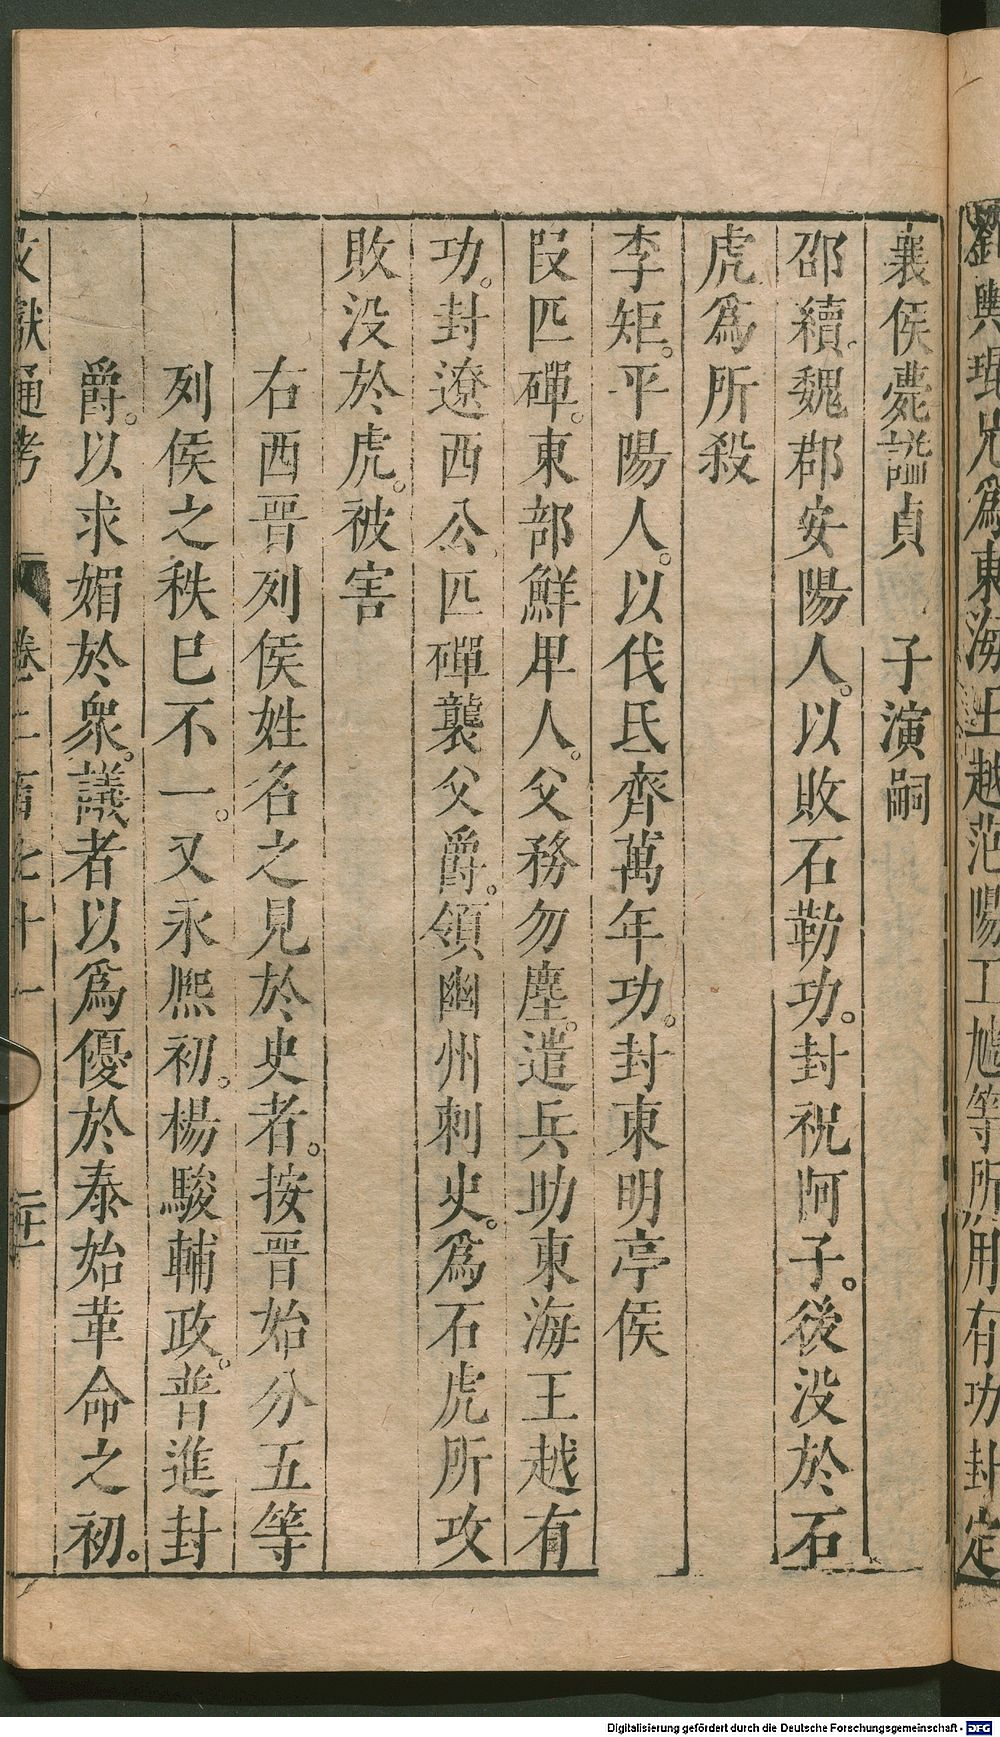 劉輿琨兄爲東海王越范陽王虓等所用有功封定
襄侯薨諡貞　子演嗣
邵續魏郡安陽人。以敗石勒功。封祝阿子。後没於石
虎爲所殺
李矩。平陽人。以伐氐齊萬年功。封東明亭侯
段匹磾。東部鮮卑人。父務勿塵。遣兵助東海王越有
功。封遼西公匹磾襲父爵。領幽州刺史。爲石虎所攻
敗没於虎。被害
右西晋列侯姓名之見於史者。按晋始分五等
列侯之秩巳不一。又永熈初。楊駿輔政。普進封
爵。以求媚於衆。議者以爲優於泰始革命之初。
文獻通考　卷二百七十一　二十
Digitalisierung gefördert durch die Deutsche Forschungsgemeinschaft - DFG